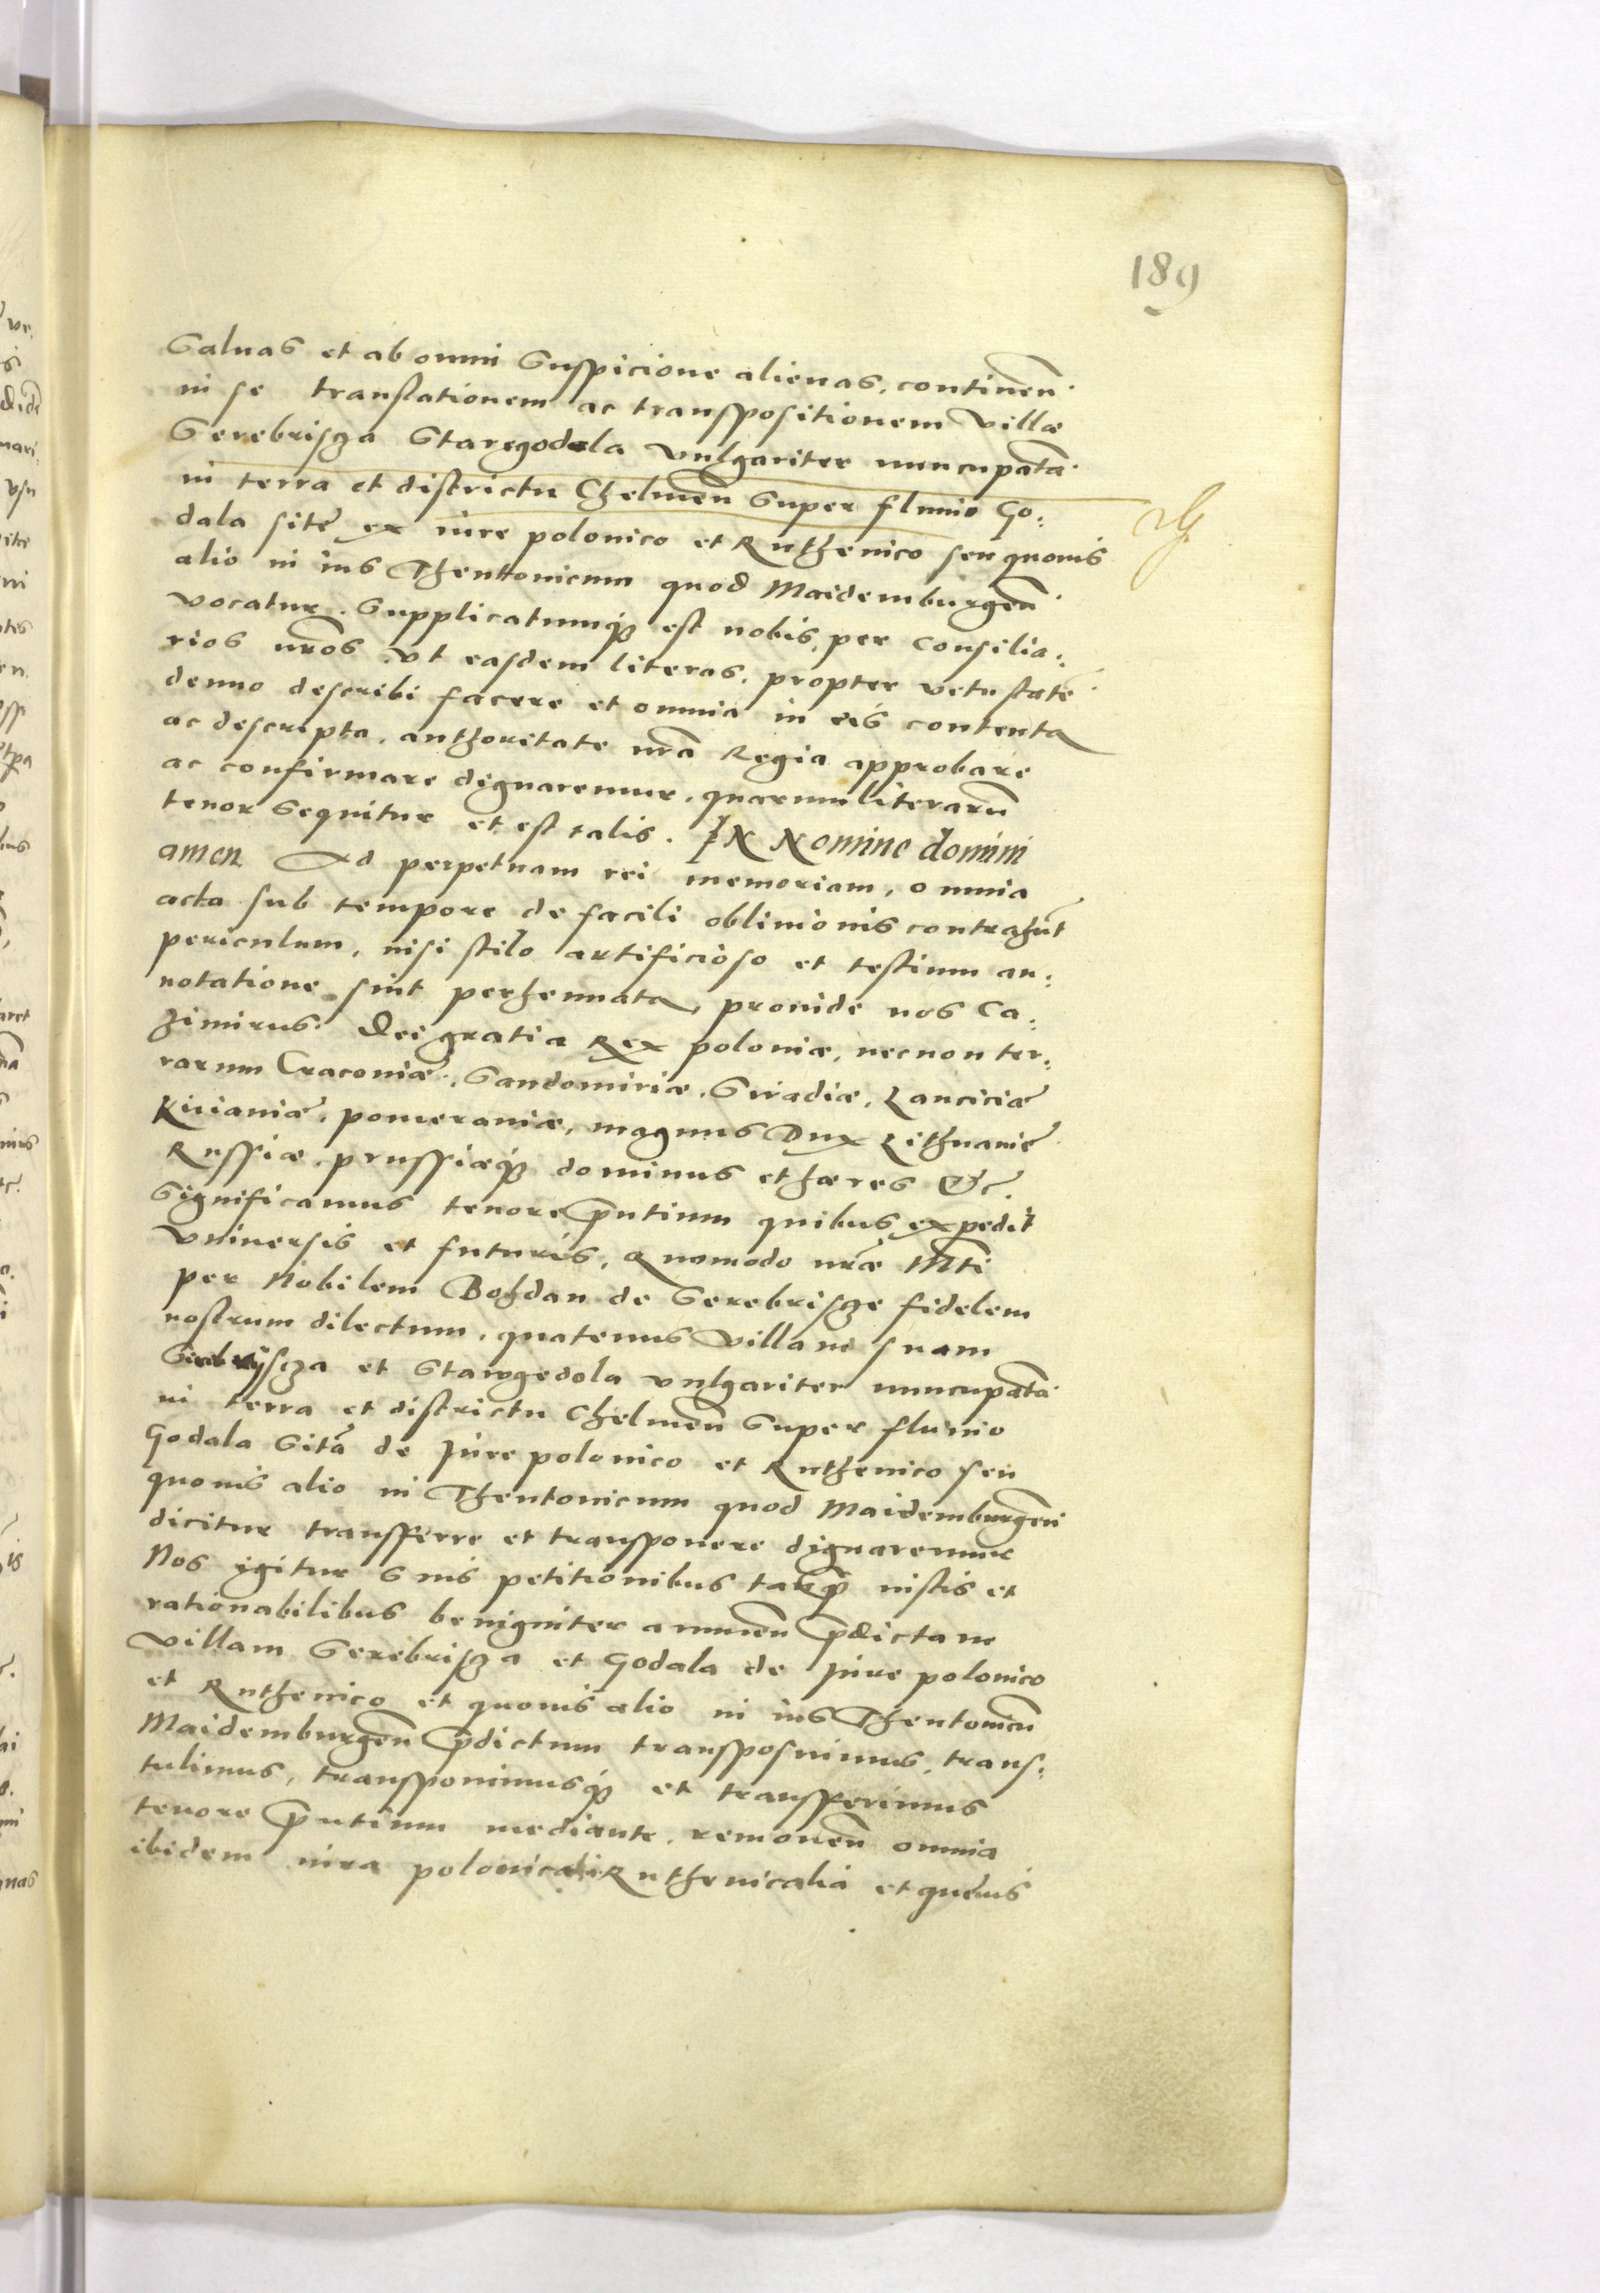 189
Salvas et ab omni Suspicione alienas, continen̄.
in se translationem ac transpositionem Villæ
Serebrisza Staregodola vulgariter nuncupatā.
in terra et districtu Chelmen̄ Super fluvio Go:
dala site ex iure polonico et Ruthenico seu quovis
alio in ius Theuttonicum quod Maidemburgen̄.
vocatur. Supplicatumq3 est nobis, per Consilia:
rios nr̄os Vt easdem literas, propter vetustatē.
denuo describi facere et omnia in eis contenta
ac descripta, authoritate nr̄a Regia approbare
ac confirmare dignaremur, quarum literarū
tenor Sequitur et est talis. IN Nomine domini
amen Ad perpetuam rei memoriam, omnia
acta sub tempore de facili oblivionis contrahūt
periculum, nisi stilo artificioso et testium an:
notatione sint perhennata, provide nos Ca:
zimirus Dei gratia Rex poloniæ, necnon ter:
rarum Cracoviæ, Sandomiriæ, Siradiæ, Lanciciæ
Kuiaviæ, pomeraniæ, magnus Dux Lithuaniē
Russiæ, prussiæq3 dominus et hæres &c.
Significamus tenore pn̄tium quibus expedit
Vniversis et futuris, Quomodo nr̄æ Mti
per Nobilem Bohdan de Serebrisze fidelem
nostrum dilectum, quatenus Villam suam
et Starogedola vulgariter nuncupatā.
in terra et districtu Chelmen̄ Super fluvio
Godala Sitā de Iure polonico et Ruthenico seu
quovis alio in Theutonicum quod Maidemburgen̄
dicitur transferre et transponere dignaremur
Nos igitur Suis petitionibus tanq̄ iustis et
rationabilibus benigniter annuen̄ p̄dictam
Villam Serebrisza et Godala de Iure polonico
et Ruthenico et quovis alio in ius Theutonicū
Maidemburgen̄ p̄dictum transposuimus, trans:
tulimus, transponimusq3 et transferimus
tenore p̄ntium mediante, removen̄ omnia
ibidem iura polonicali Ruthenicalia et quēvis